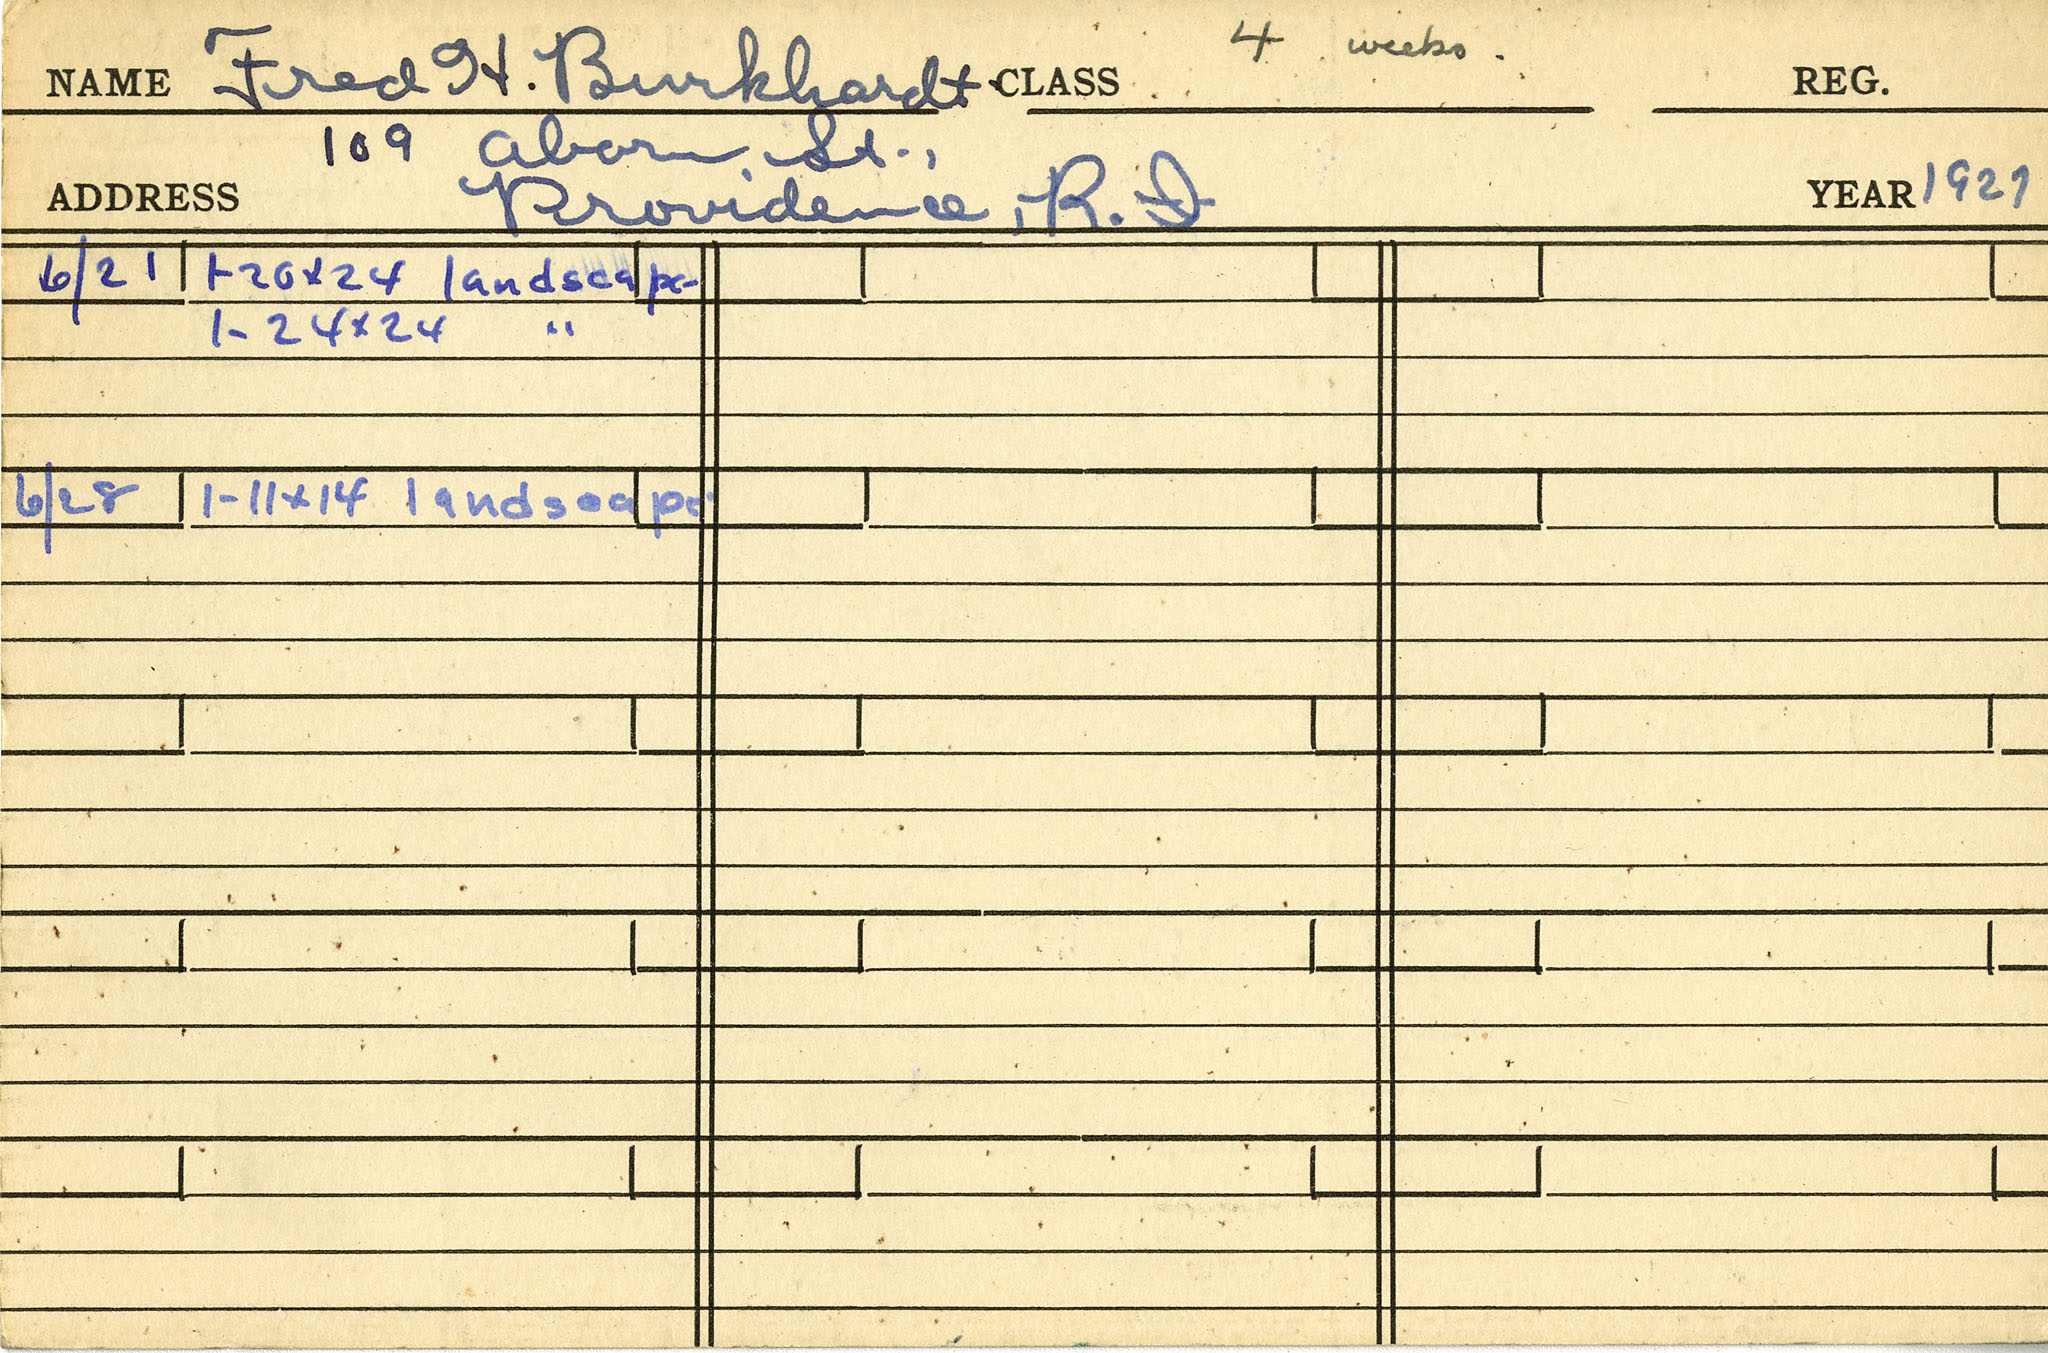 NAME Fred H. Burkhardt CLASS 4 weeks. REG.
109 Aborn St.,
ADDRESS Providence, R.I YEAR 1927
6/21 1-20x24 landscape
1-24x24 "
6/28 1-11x14 landscape